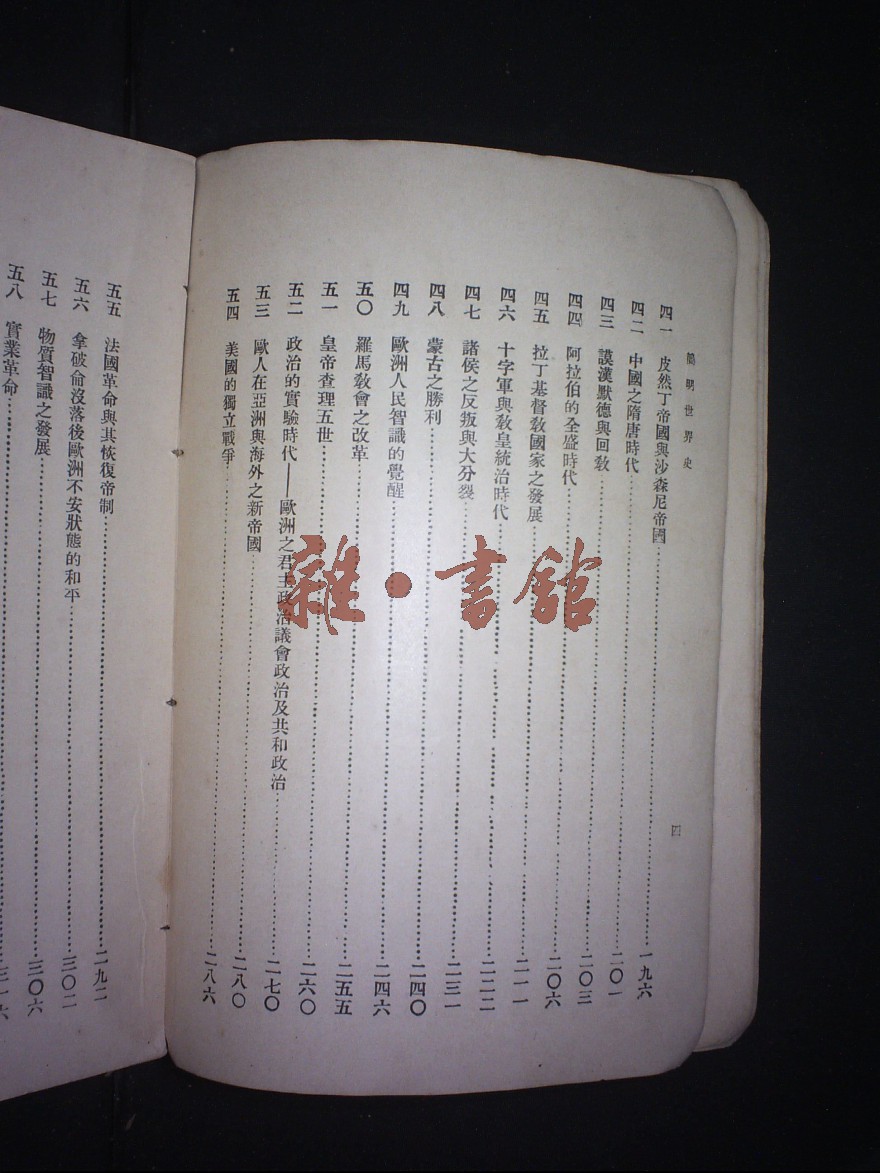 簡明世界史
四
四一 皮然丁帝國與沙森尼帝國……一九六
四二 中國之隋唐時代……二〇一
四三 謨漢默德與回教……二〇三
四四 阿拉伯的全盛時代……二〇六
四五 拉丁基督教國家之發展……二一一
四六 十字軍與教皇統治時代……二二二
四七 諸侯之反叛與大分裂……二三一
四八 蒙古之勝利……二四〇
四九 歐洲人民智識的覺醒……二四六
五〇 羅馬教會之改革……二五五
五一 皇帝查理五世……二六〇
五二 政治的實驗時代——歐洲之君主政治議會政治及共和政治……二七〇
五三 歐人在亞洲與海外之新帝國……二八〇
五四 美國的獨立戰爭……二八六
五五 法國革命與其恢復帝制……二九二
五六 拿破侖沒落後歐洲不安狀態的和平……三〇二
五七 物質智識之發展……三〇六
五八 實業革命……三一六
雜·書館